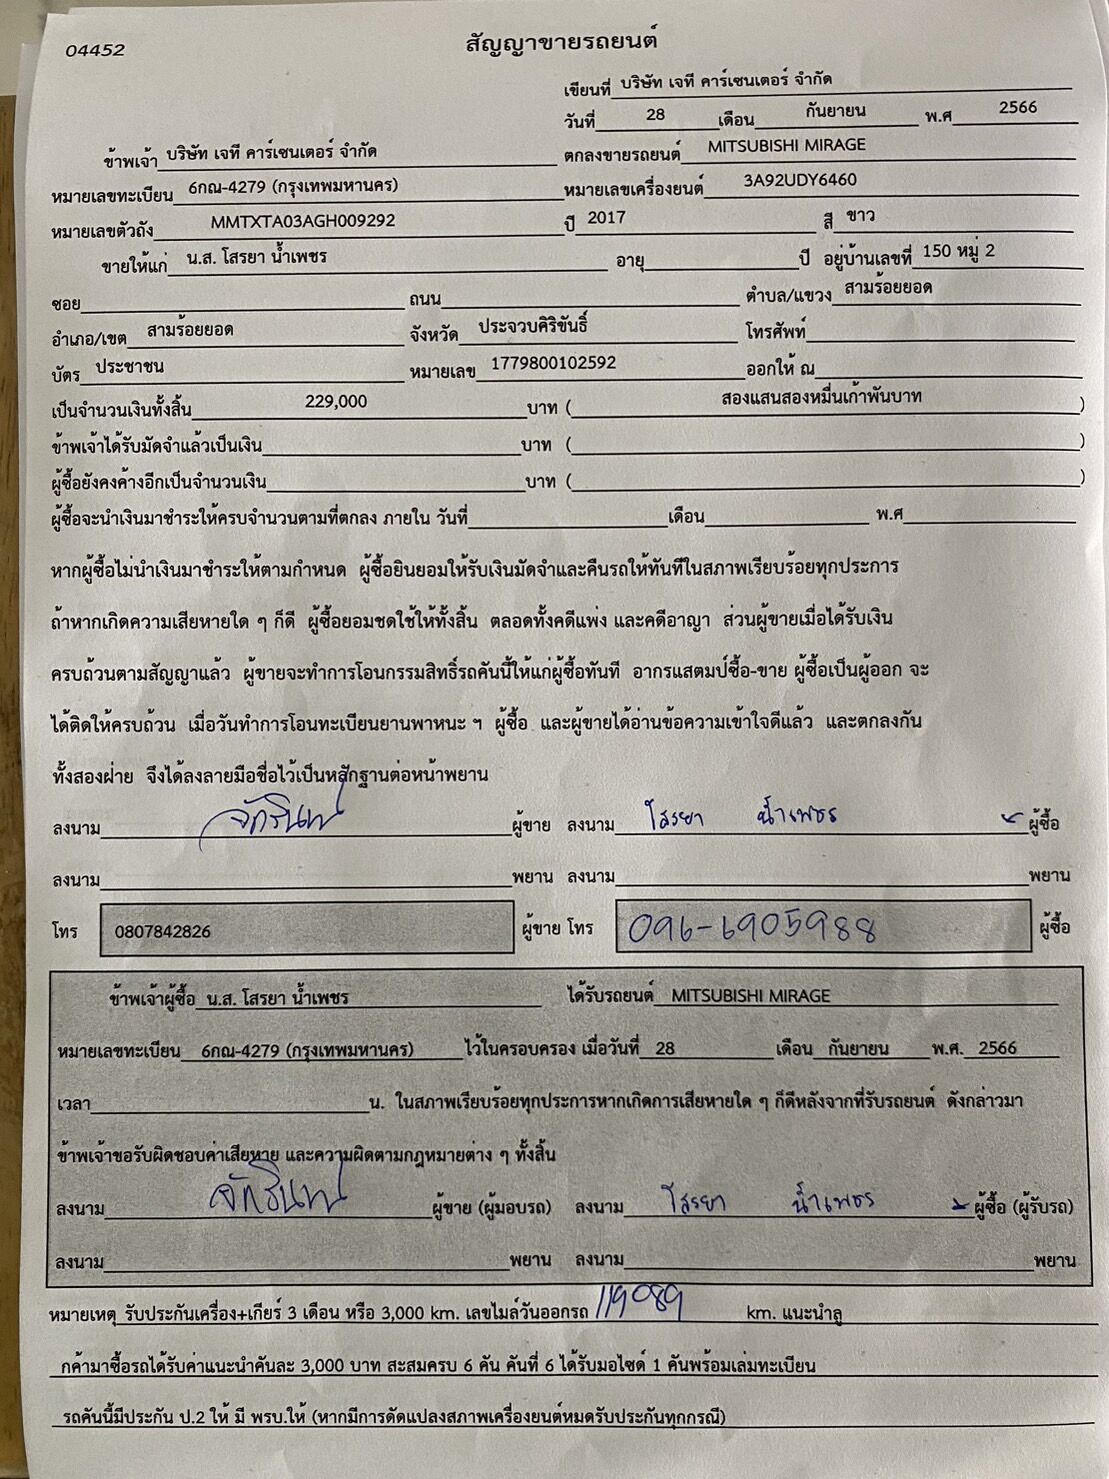 04452
สัญญาขายรถยนต์
เขียนที่ บริษัท เจที คาร์เซนเตอร์ จำกัด
วันที่ 28 เดือน กันยายน พ.ศ 2566
ข้าพเจ้า บริษัท เจที คาร์เซนเตอร์ จำกัด ตกลงขายรถยนต์ MITSUBISHI MIRAGE
หมายเลขทะเบียน 6กณ-4279 (กรุงเทพมหานคร) หมายเลขเครื่องยนต์ 3A92UDY6460
หมายเลขตัวถัง MMTXTA03AGH009292 ปี 2017 สี ขาว
ขายให้แก่ น.ส. โสรยา น้ำเพชร อายุ ปี อยู่บ้านเลขที่ 150 หมู่ 2
ซอย ถนน ตำบล/แขวง สามร้อยยอด
อำเภอ/เขต สามร้อยยอด จังหวัด ประจวบคิริขันธิ์ โทรศัพท์
บัตร ประชาชน หมายเลข 1779800102592 ออกให้ ณ
เป็นจำนวนเงินทั้งสิ้น 229,000 บาท ( สองแสนสองหมื่นเก้าพันบาท )
ข้าพเจ้าได้รับมัดจำแล้วเป็นเงิน บาท ( )
ผู้ซื้อยังคงค้างอีกเป็นจำนวนเงิน บาท ( )
ผู้ซื้อจะนำเงินมาชำระให้ครบจำนวนตามที่ตกลง ภายใน วันที่ เดือน พ.ศ
หากผู้ซื้อไม่นำเงินมาชำระให้ตามกำหนด ผู้ซื้อยินยอมให้รับเงินมัดจำและคืนรถให้ทันทีในสภาพเรียบร้อยทุกประการ
ถ้าหากเกิดความเสียหายใด ๆ ก็ดี ผู้ซื้อยอมชดใช้ให้ทั้งสิ้น ตลอดทั้งคดีแพ่ง และคดีอาญา ส่วนผู้ขายเมื่อได้รับเงิน
ครบถ้วนตามสัญญาแล้ว ผู้ขายจะทำการโอนกรรมสิทธิ์รถคันนี้ให้แก่ผู้ซื้อทันที อากรแสตมป์ซื้อ-ขาย ผู้ซื้อเป็นผู้ออก จะ
ได้ติดให้ครบถ้วน เมื่อวันทำการโอนทะเบียนยานพาหนะ ฯ ผู้ซื้อ และผู้ขายได้อ่านข้อความเข้าใจดีแล้ว และตกลงกัน
ทั้งสองฝ่าย จึงได้ลงลายมือชื่อไว้เป็นหลักฐานต่อหน้าพยาน
ลงนาม ผู้ขาย ลงนาม โสรยา น้ำเพชร ผู้ซื้อ
ลงนาม พยาน ลงนาม พยาน
โทร 0807842826 ผู้ขาย โทร 096-6905988 ผู้ซื้อ
ข้าพเจ้าผู้ซื้อ น.ส. โสรยา น้ำเพชร ได้รับรถยนต์ MITSUBISHI MIRAGE
หมายเลขทะเบียน 6กณ-4279 (กรุงเทพมหานคร) ไว้ในครอบครอง เมื่อวันที่ 28 เดือน กันยายน พ.ศ. 2566
เวลา น. ในสภาพเรียบร้อยทุกประการหากเกิดการเสียหายใด ๆ ก็ดีหลังจากที่รับรถยนต์ ดังกล่าวมา
ข้าพเจ้าขอรับผิดชอบค่าเสียหาย และความผิดตามกฎหมายต่าง ๆ ทั้งสิ้น
ลงนาม ผู้ขาย (ผู้มอบรถ) ลงนาม โสรยา น้ำเพชร ผู้ซื้อ (ผู้รับรถ)
ลงนาม พยาน ลงนาม พยาน
หมายเหตุ รับประกันเครื่อง+เกียร์ 3 เดือน หรือ 3,000 km. เลขไมล์วันออกรถ 119089 km. แนะนำลู
กค้ามาซื้อรถได้รับค่าแนะนำคันละ 3,000 บาท สะสมครบ 6 คัน คันที่ 6 ได้รับมอไซด์ 1 คันพร้อมเล่มทะเบียน
รถคันนี้มีประกัน ป.2 ให้ มี พรบ.ให้ (หากมีการดัดแปลงสภาพเครื่องยนต์หมดรับประกันทุกกรณี)